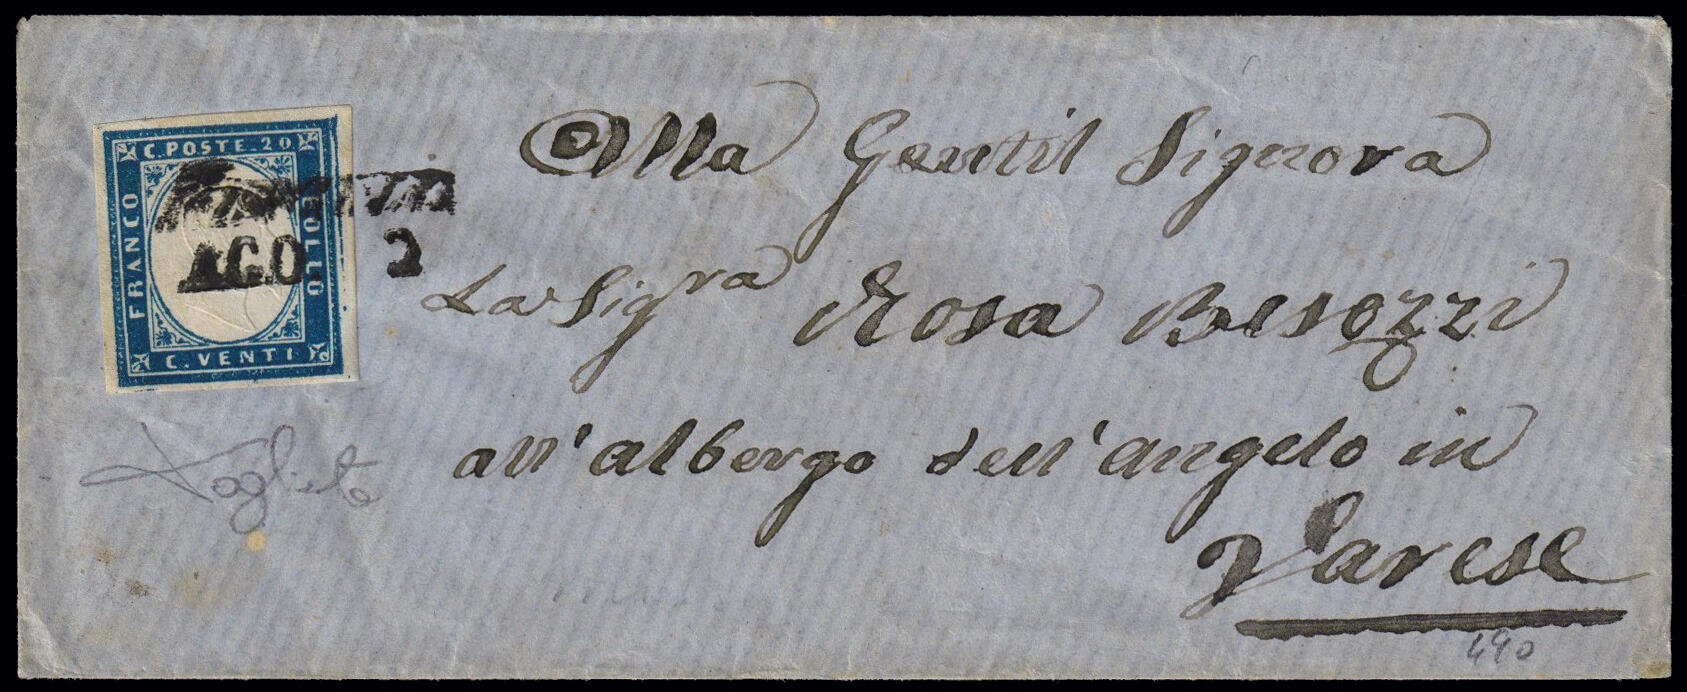 C. POSTE. 20
FRANCO
BOLLO
C. VENTI
AGO. 2
Alla Gentil Signora
La Sigra Rosa Besozzi
all'albergo dell'angelo in
Varese
490